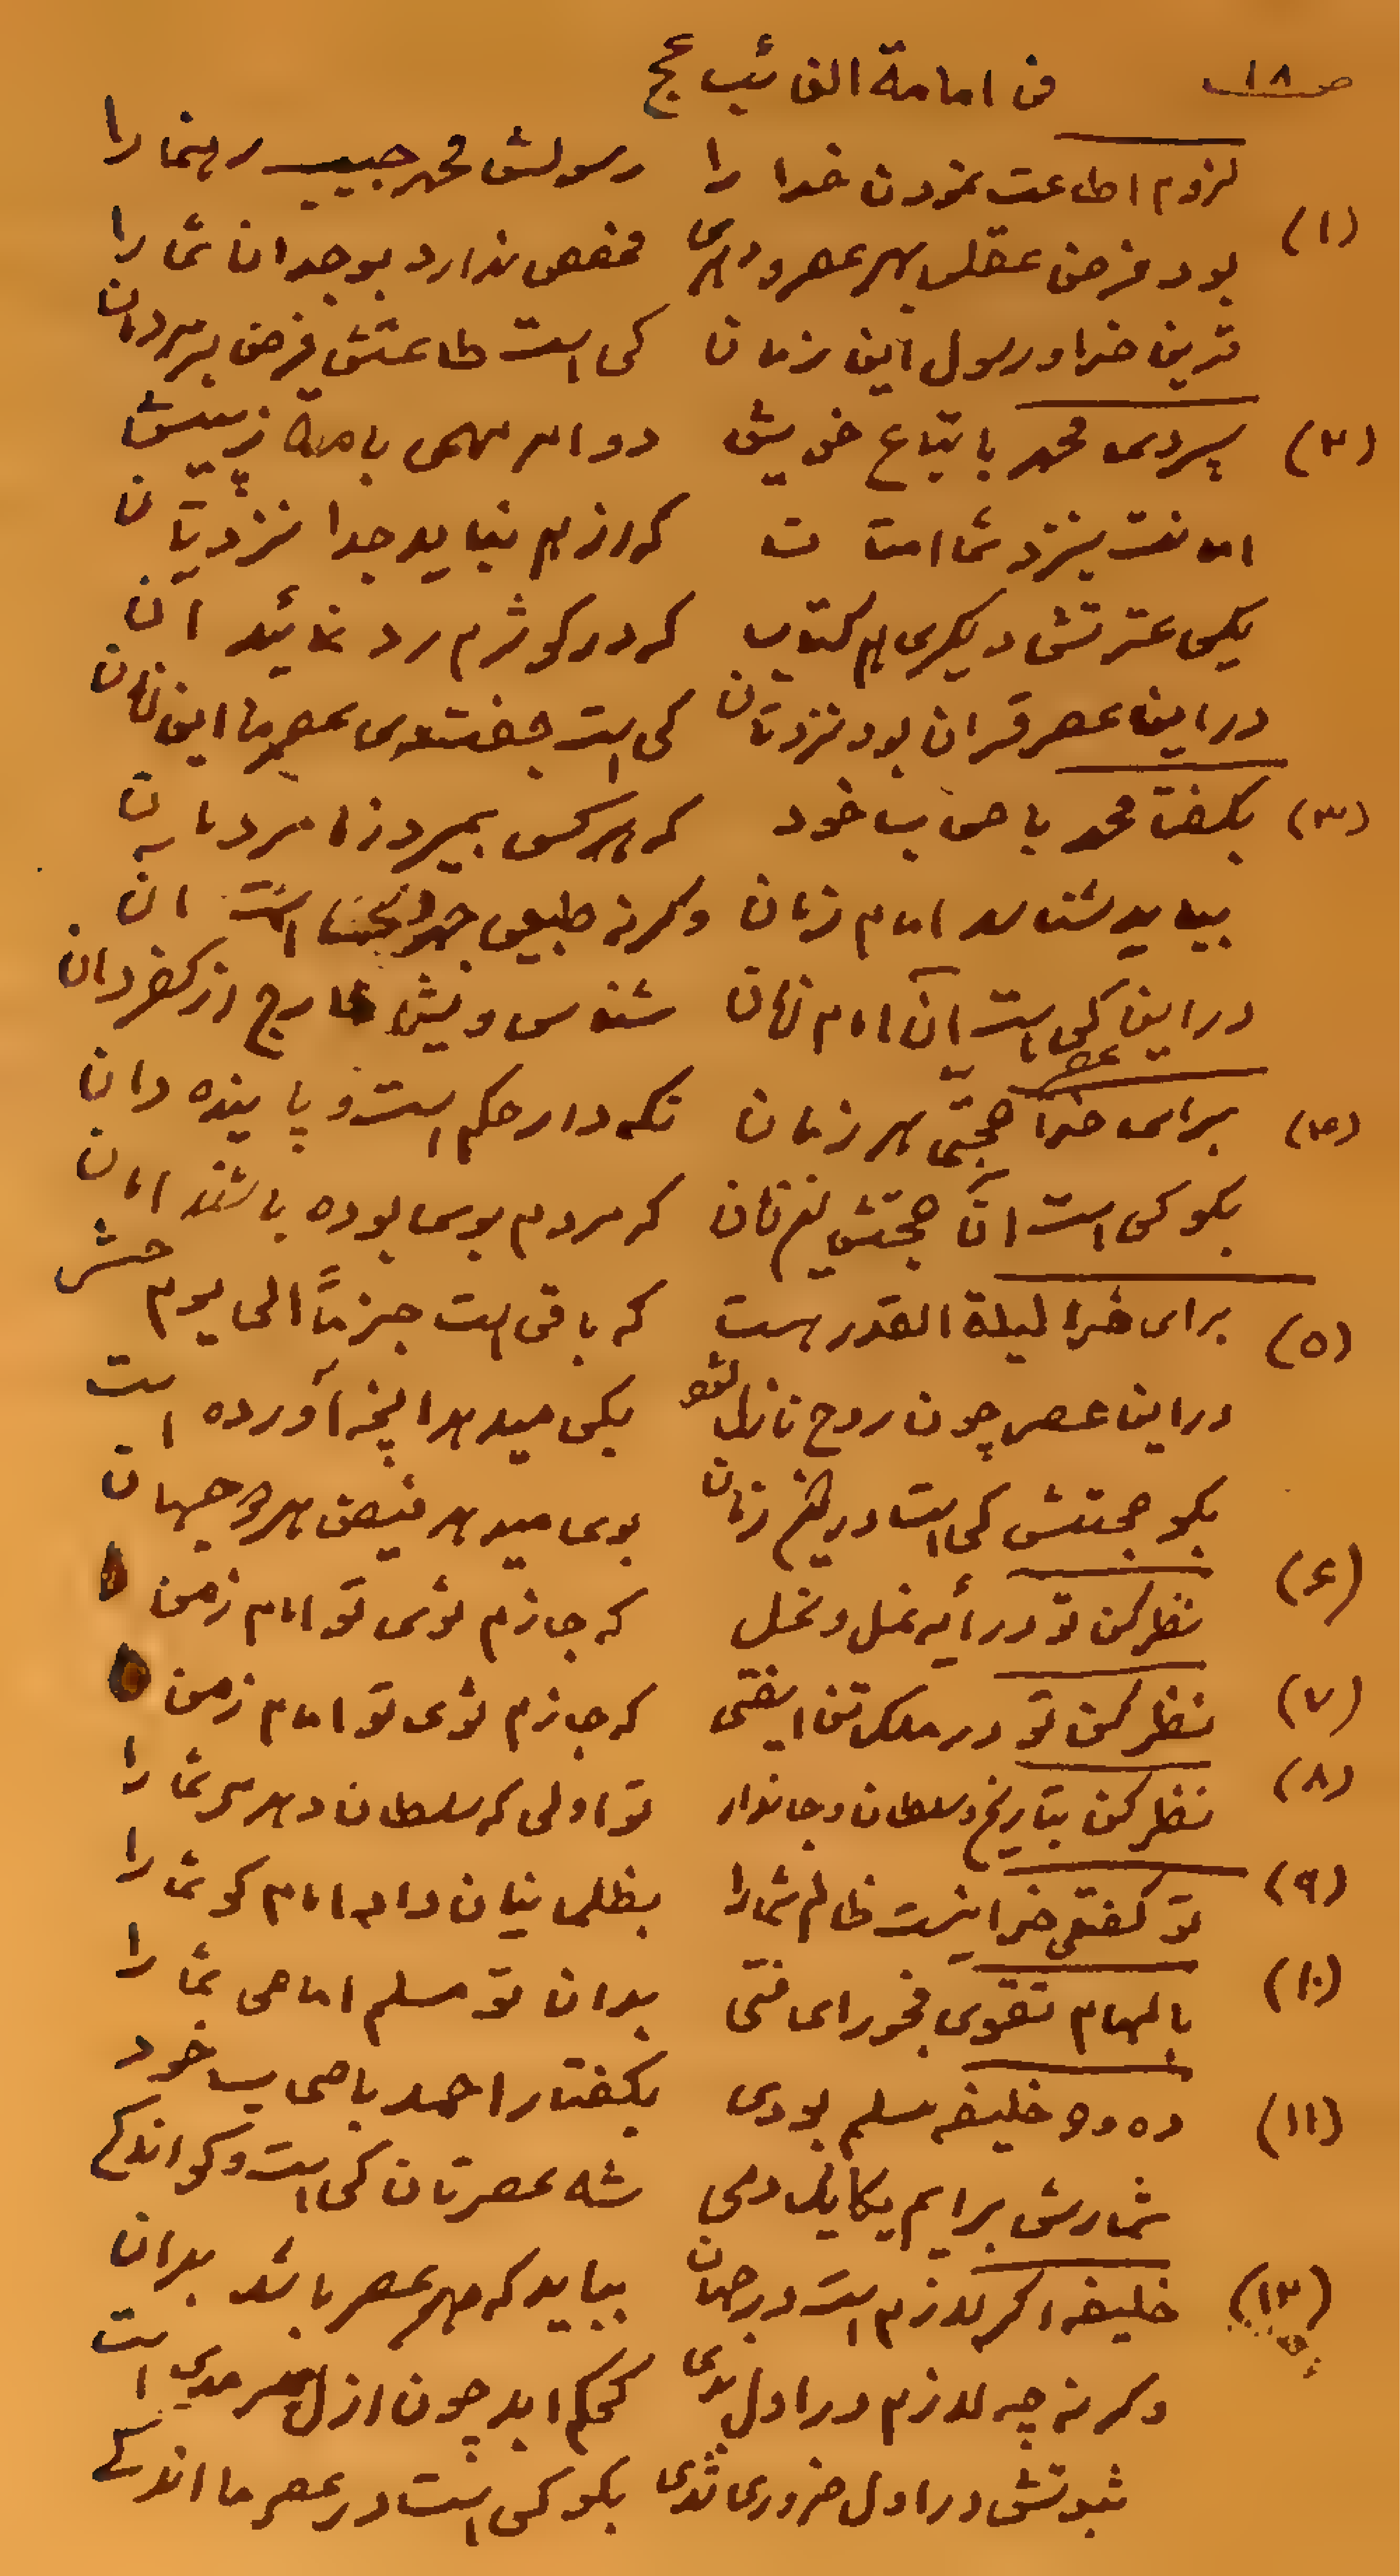 ص ١٨ فی امامة الغائب عج
لزوم اطاعت نمودن خدا را رسولش محمد حبیب رهنما را
(١) بود فرض عقلی بهر عصر و دهری مخصص ندارد بوجدان شما را
قرین خدا و رسول این زمان کی است طاعتش فرض بر مردمان
(٢) سپردی محمد باتباع خویش دو امر مهمی بامة ز پیش
امانت بنزد شما امتان که از هم نباید جدا نزدتان
یکی عترتش دیگری هم کتاب که در کوثرم رد نمائید آن
در این عصر قران بود نزدتان کی است جفت وی عصر ما این زمان
(٣) بگفتا محمد باصحاب خود که هر کس بمیرد ز مردمان
بباید شناسد امام زمان وگرنه طبیعی است آن
در این عصر کی است آن امام زمان شناسی ویش خارج از کفر دان
(٤) برای خدا حجتی هر زمان نگه دار حکم است و پاینده دان
بگو کی است آن حجتش این زمان که مردم بوی بوده باشند امان
(٥) برای خدا لیلة القدر هست که باقی است جزماً الی یوم حشر
در این عصر چون روح نازل شود بکی میدهد آنچه آورده است
بگو حجتش کی است در این زمان بوی میدهد فیض هر دو جهان
(۶) نظر کن تو در آیه نمل و نحل که جازم شوی تو امام زمن
(٧) نظر کن تو در ملک تن ای فتی که جازم شوی تو امام زمن
(٨) نظر کن بتاریخ و سلطان و جاندار تو اولی که سلطان دهد مر شما را
(٩) تو گفتی خدا نیست ظالم شما را بظلمی نیان داد امام کو شما را
(١٠) بالهام تقوی فجور ای فتی بدان تو مسلم امامی شما را
(١١) ده و دو خلیفه مسلم بودی بگفتار احمد باصحاب خود
شمارش برایم یکایک دمی شه عصرتان کی است و کو اندکی
(١٢) خلیفه اگر لازم است در جهان بباید که هر عصر باشد بدان
وگرنه چه لازم در اول بدی بحکم ابد چون ازل سرمدی است
ثبوتش در اول ضروری شدی بگو کی است در عصر ما اندکی